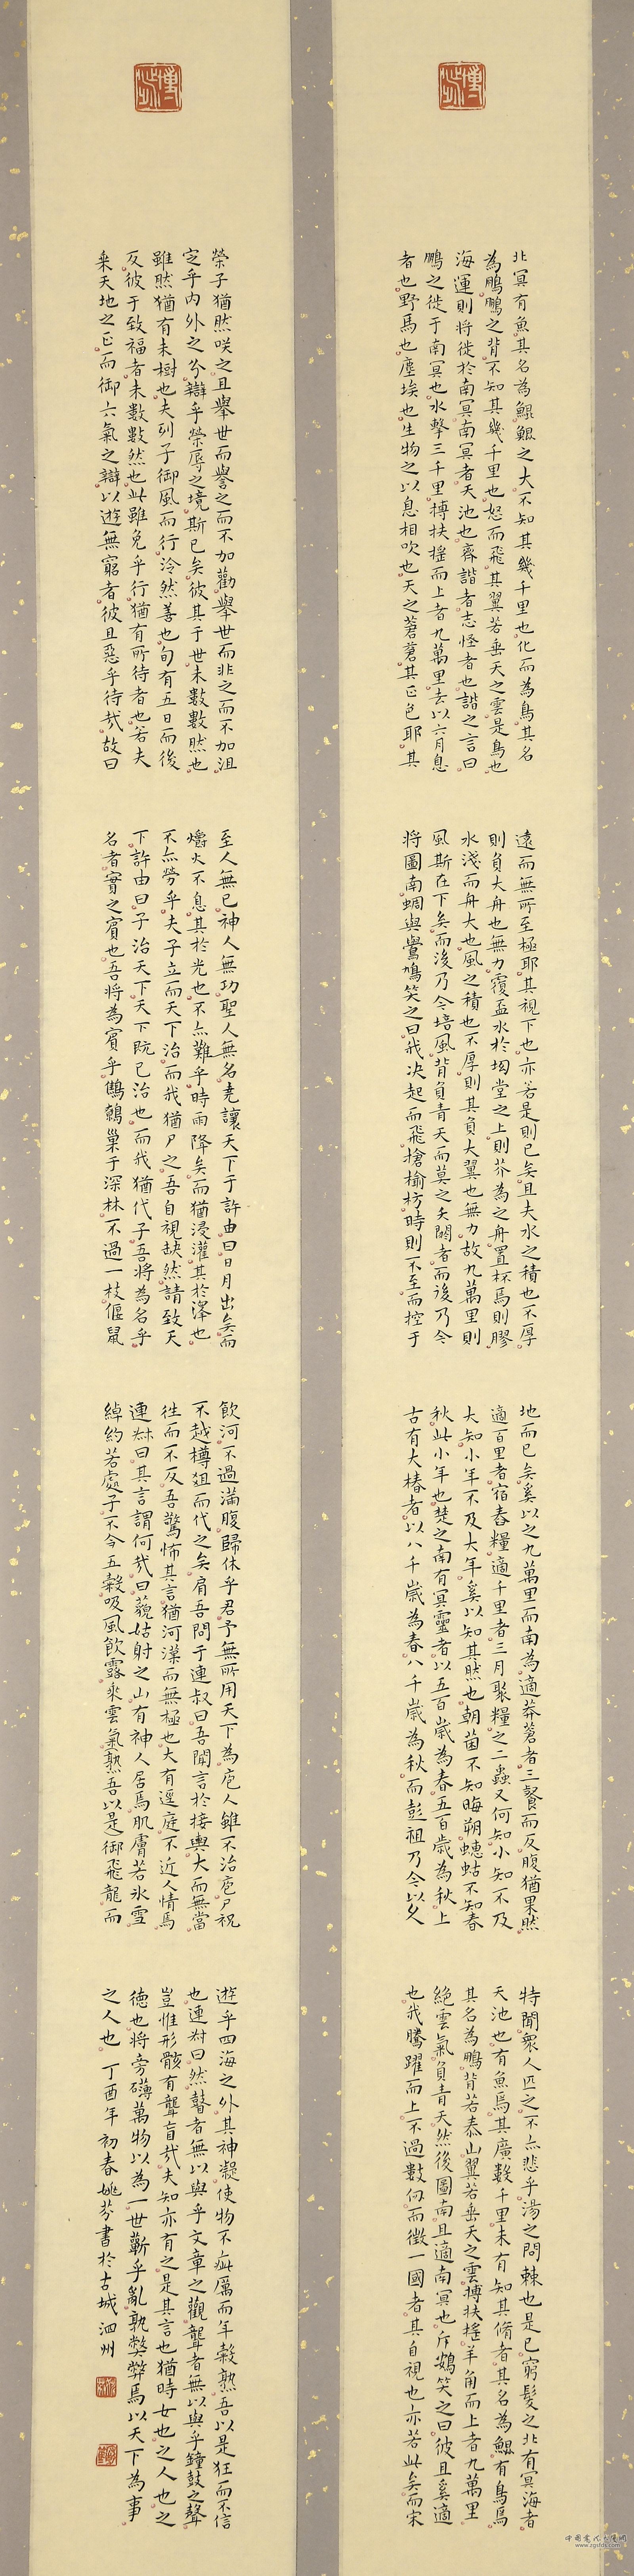 北冥有魚其名為鯤鯤之大不知其幾千里也化而為鳥其名
為鵬鵬之背不知其幾千里也怒而飛其翼若垂天之雲是鳥也
海運則將徙於南冥南冥者天池也齊諧者志怪者也諧之言曰
鵬之徙于南冥也水擊三千里摶扶搖而上者九萬里去以六月息
者也野馬也塵埃也生物之以息相吹也天之蒼蒼其正色耶其
遠而無所至極耶其視下也亦若是則已矣且夫水之積也不厚
則負大舟也無力覆盃水於坳堂之上則芥為之舟置杯焉則膠
水淺而舟大也風之積也不厚則其負大翼也無力故九萬里則
風斯在下矣而後乃今培風背負青天而莫之夭閼者而後乃今
將圖南蜩與鷽鳩笑之曰我決起而飛搶榆枋時則不至而控于
地而已矣奚以之九萬里而南為適莽蒼者三餐而反腹猶果然
適百里者宿舂糧適千里者三月聚糧之二蟲又何知小知不及
大知小年不及大年奚以知其然也朝菌不知晦朔蟪蛄不知春
秋此小年也楚之南有冥靈者以五百歲為春五百歲為秋上
古有大椿者以八千歲為春八千歲為秋而彭祖乃今以久
特聞眾人匹之不亦悲乎湯之問棘也是已窮髮之北有冥海者
天池也有魚焉其廣數千里未有知其脩者其名為鯤有鳥焉
其名為鵬背若泰山翼若垂天之雲摶扶搖羊角而上者九萬里
絕雲氣負青天然後圖南且適南冥也斥鴳笑之曰彼且奚適
也我騰躍而上不過數仞而徵一國者其自視也亦若此矣而宋
榮子猶然笑之且舉世而譽之而不加勸舉世而非之而不加沮
定乎內外之分辯乎榮辱之境斯已矣彼其于世未數數然也
雖然猶有未樹也夫列子御風而行泠然善也旬有五日而後
反彼于致福者未數數然也此雖免乎行猶有所待者也若夫
乘天地之正而御六氣之辯以遊無窮者彼且惡乎待哉故曰
至人無己神人無功聖人無名堯讓天下于許由曰日月出矣而
爝火不息其於光也不亦難乎時雨降矣而猶浸灌其於澤也
不亦勞乎夫子立而天下治而我猶尸之吾自視缺然請致天
下許由曰子治天下天下既已治也而我猶代子吾將為名乎
名者實之賓也吾將為賓乎鷦鷯巢于深林不過一枝偃鼠
飲河不過滿腹歸休乎君予無所用天下為庖人雖不治庖尸祝
不越樽俎而代之矣肩吾問于連叔曰吾聞言於接輿大而無當
往而不反吾驚怖其言猶河漢而無極也大有逕庭不近人情焉
連叔曰其言謂何哉曰藐姑射之山有神人居焉肌膚若冰雪
綽約若處子不食五穀吸風飲露乘雲氣熟吾以是御飛龍而
遊乎四海之外其神凝使物不疵厲而年穀熟吾以是狂而不信
也連叔曰然瞽者無以與乎文章之觀聾者無以與乎鐘鼓之聲
豈惟形骸有聾盲哉夫知亦有之是其言也猶時女也之人也之
德也將旁礡萬物以為一世蘄乎亂孰弊弊焉以天下為事
之人也 丁酉年初春姚芬書於古城泗州